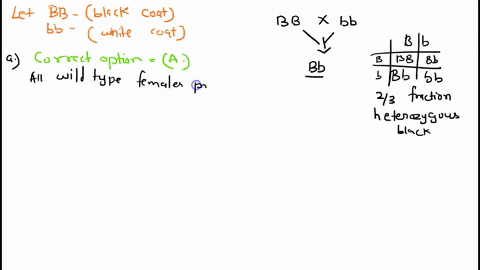 Let BB - (black coat)
bb - (white coat)
a.) Correct option = (A.)
All wild type females
BB X bb
Bb
B b
B BB Bb
b Bb bb
2/3 fraction
heterozygous
black